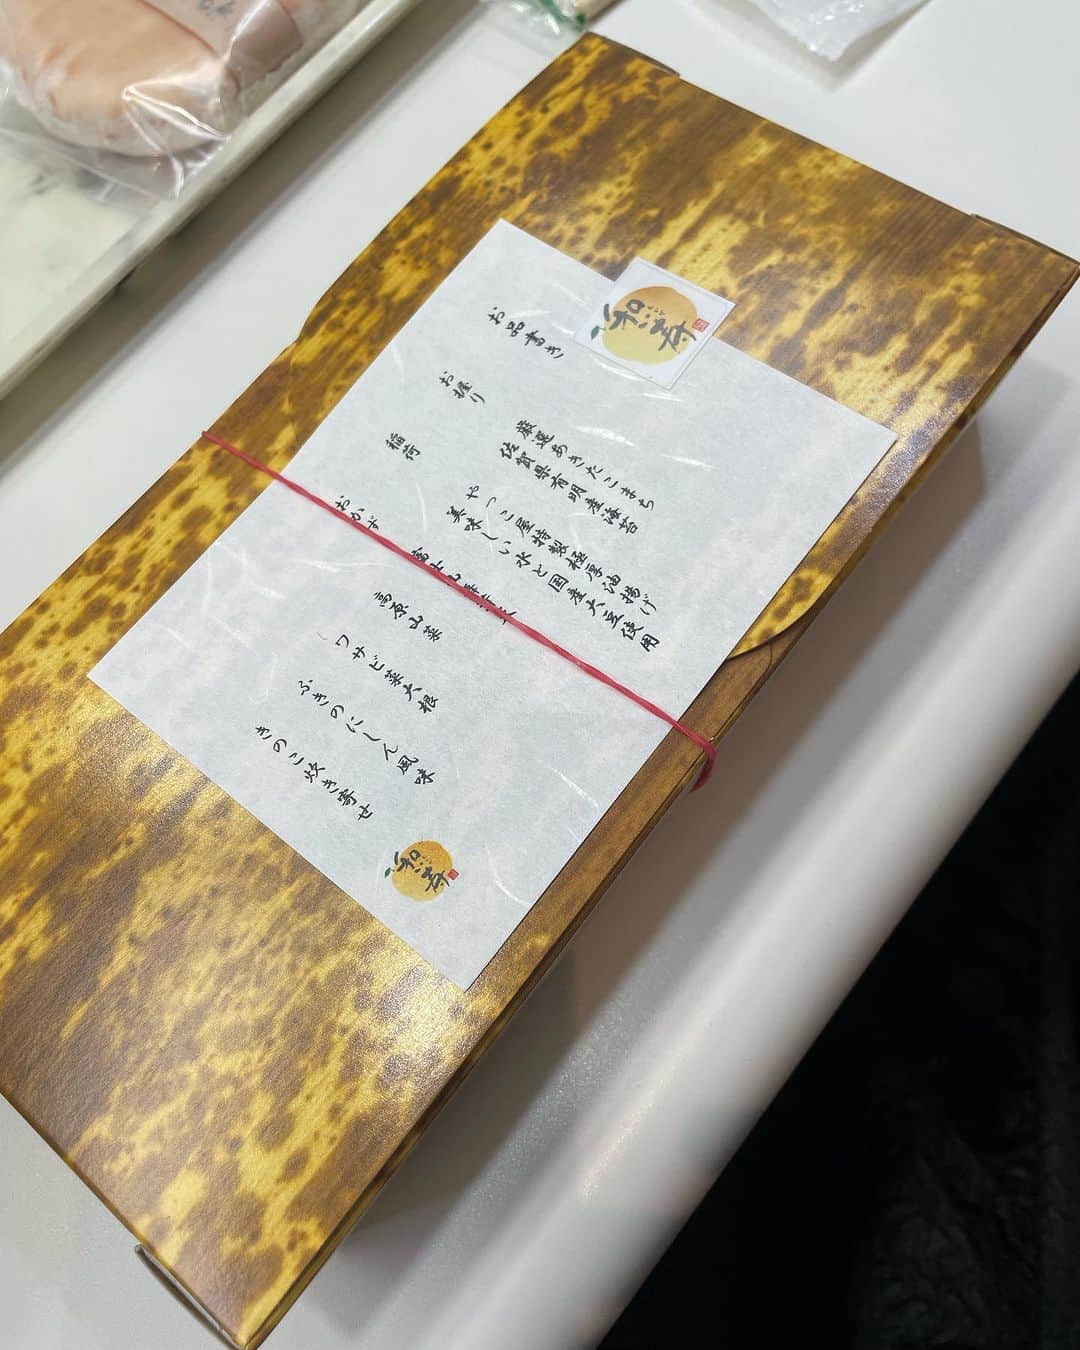 和寿
お品書き
お握り
厳選あきたこまち
佐賀県有明産海苔
稲荷
やっこ屋特製極厚油揚げ
美味しい水と国産大豆使用
おかず
高原山菜
ワサビ菜大根
ふきのにしん風味
きのこ炊き寄せ
和寿